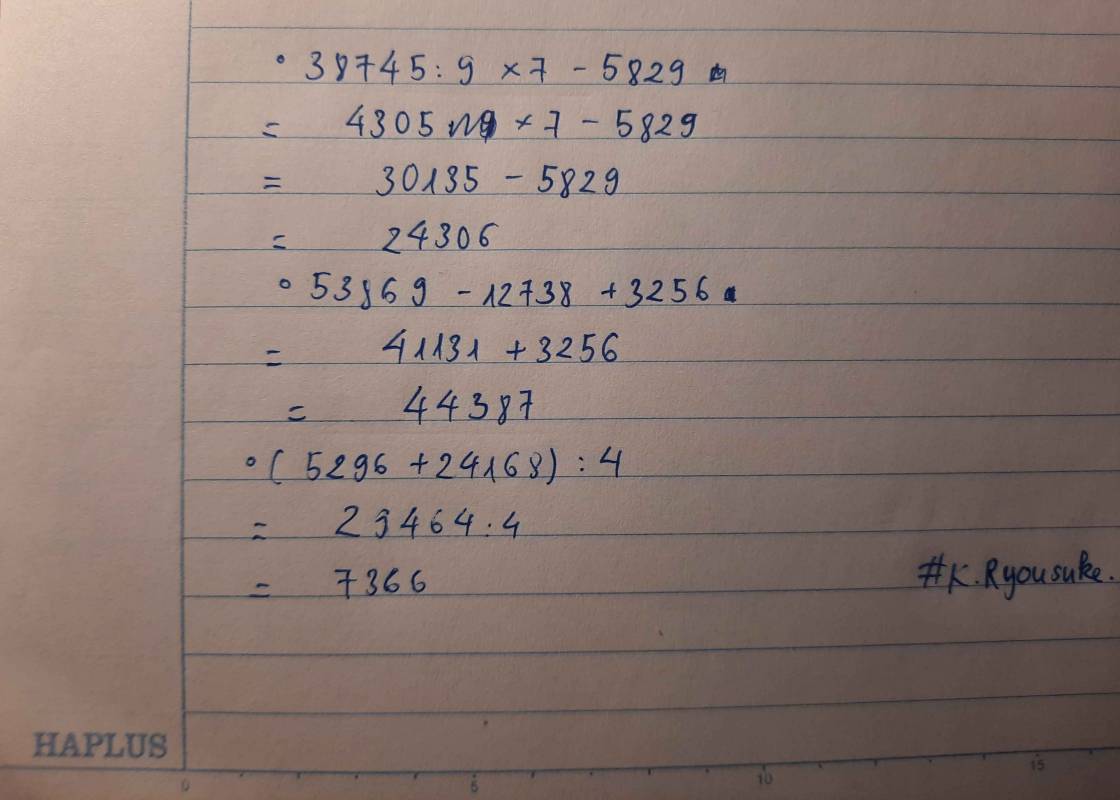 ° 38745 : 9 × 7 - 5829
= 4305 × 7 - 5829
= 30135 - 5829
= 24306
° 53869 - 12738 + 3256
= 41131 + 3256
= 44387
° ( 5296 + 24168) : 4
= 29464 : 4
= 7366
#K.Ryousuke.
HAPLUS
0 5 10 15